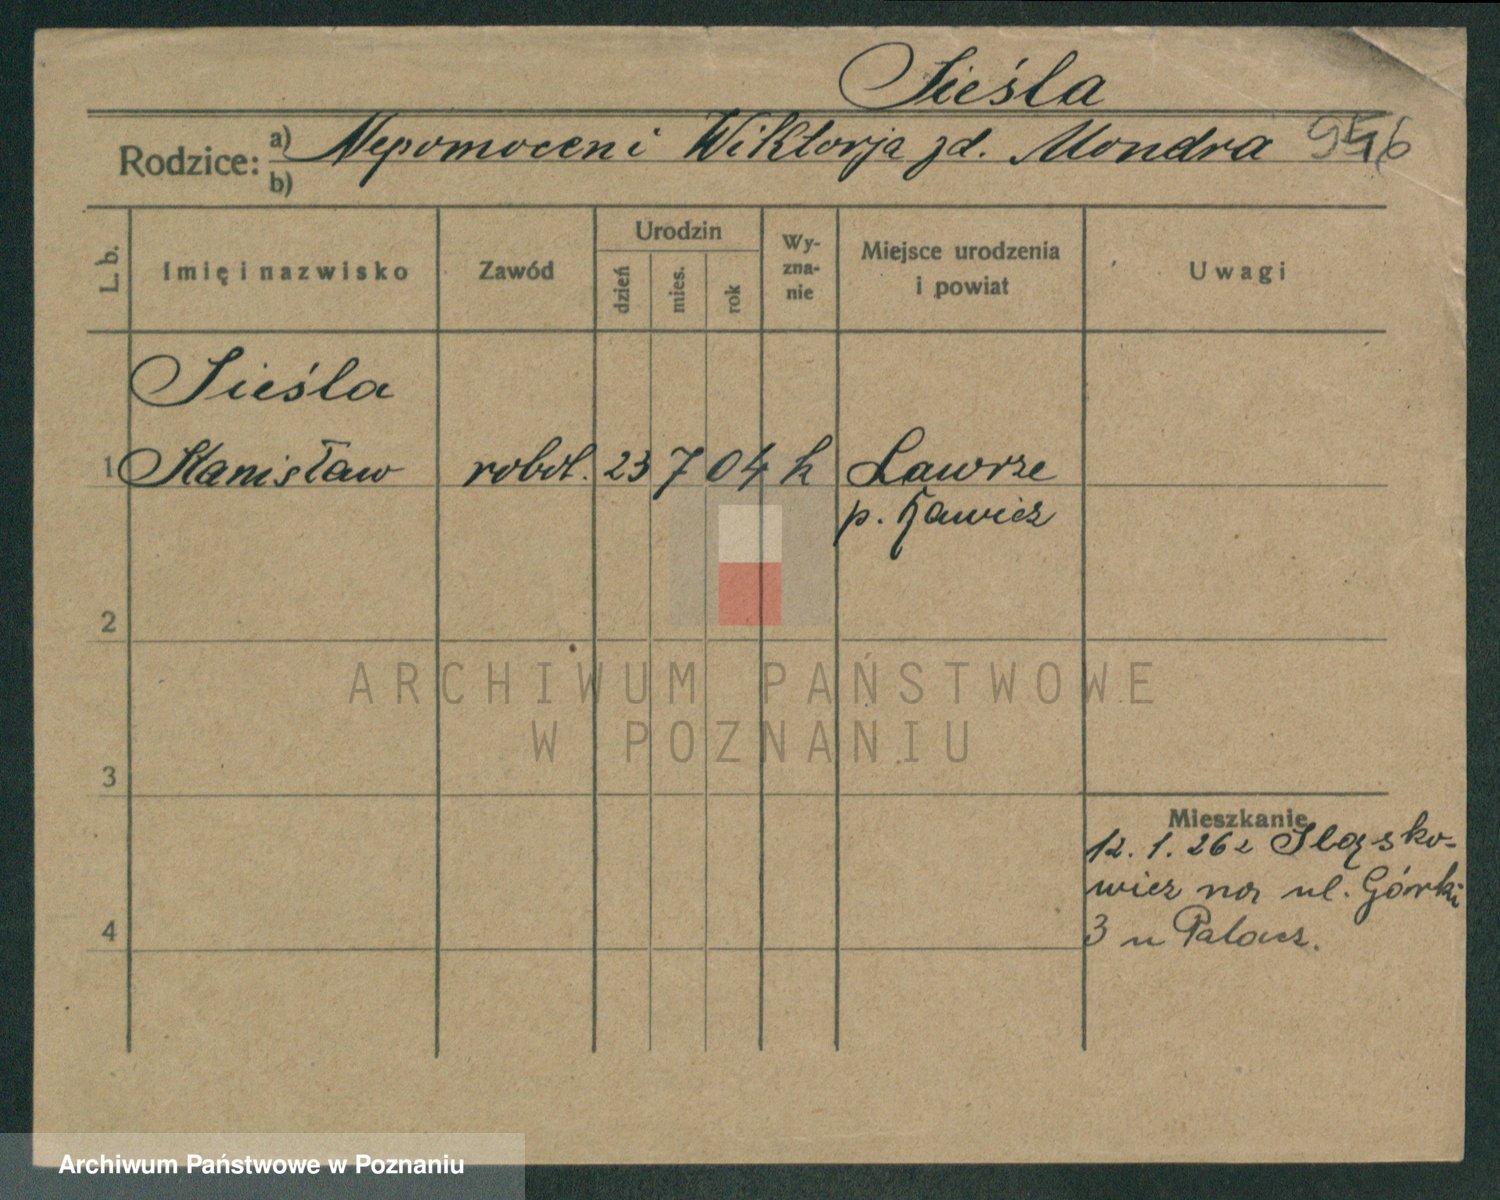 Sieśla
Rodzice: a) Nepomocen i Wiktorja zd. Mondra
b)
L. b. Imię i nazwisko Zawód Urodzin dzień mies. rok Wyznanie Miejsce urodzenia i powiat Uwagi
Sieśla
1 Stanisław robot. 23 7 04 k Ławrze
p. Rawicz
2
ARCHIWUM PAŃSTWOWE
W POZNANIU
3
Mieszkanie
12. 1. 26 z Śląsko-
wicz na ul. Górki
4 3 u Palacz.
Archiwum Państwowe w Poznaniu